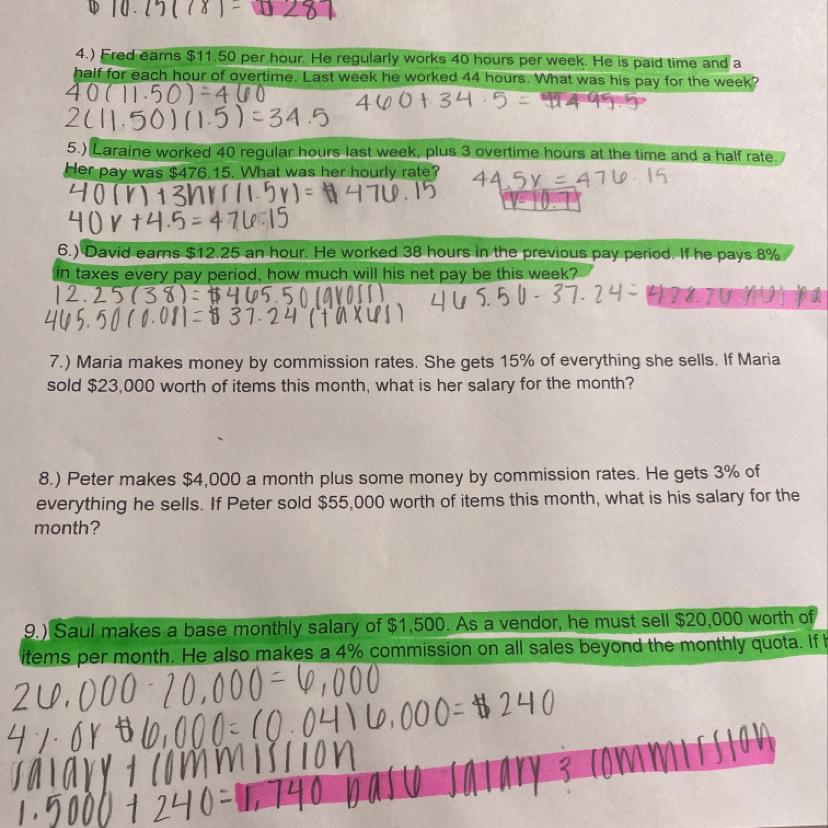 $10.25(28)= $287
4.) Fred earns $11.50 per hour. He regularly works 40 hours per week. He is paid time and a
half for each hour of overtime. Last week he worked 44 hours. What was his pay for the week?
40(11.50)=460 460+34.5= $495.5
2(11.50)(1.5)=34.5
5.) Laraine worked 40 regular hours last week, plus 3 overtime hours at the time and a half rate.
Her pay was $476.15. What was her hourly rate?
40(r)+3hrs(1.5r)= $476.15 44.5r = 476.15
r=10.7
40r+4.5=476.15
6.) David earns $12.25 an hour. He worked 38 hours in the previous pay period. If he pays 8%
in taxes every pay period, how much will his net pay be this week?
12.25(38)=$465.50(gross) 465.50-37.24=428.26 net
465.50(0.08)=$37.24(taxes)
7.) Maria makes money by commission rates. She gets 15% of everything she sells. If Maria
sold $23,000 worth of items this month, what is her salary for the month?
8.) Peter makes $4,000 a month plus some money by commission rates. He gets 3% of
everything he sells. If Peter sold $55,000 worth of items this month, what is his salary for the
month?
9.) Saul makes a base monthly salary of $1,500. As a vendor, he must sell $20,000 worth of
items per month. He also makes a 4% commission on all sales beyond the monthly quota. If
26,000-20,000=6,000
4% or $6,000=(0.04)6,000=$240
salary + commission
1.5000+240=1,740 base salary & commission